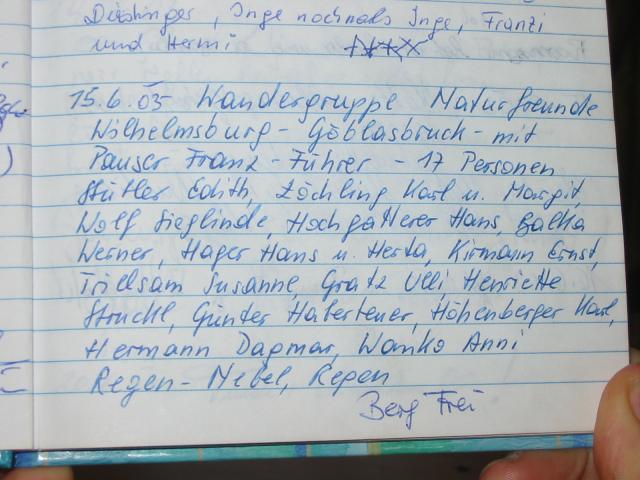 Dieshinger, Inge nochmals Inge, Franzi
und Hermi
15.6.05 Wandergruppe Naturfreunde
Wilhelmsburg - Göblasbruch - mit
Pauser Franz - Führer - 17 Personen
Stütler Edith, Zöchling Karl u. Margit,
Wolf Sieglinde, Hochgatterer Hans, Galka
Werner, Hager Hans u. Herta, Kirmann Ernst,
Trillsam Susanne, Gratz Ulli, Henriette
Struckl, Günter Habertener, Höhenberger Karl,
Hermann Dagmar, Wanko Anni
Regen - Nebel, Regen
Berg Frei